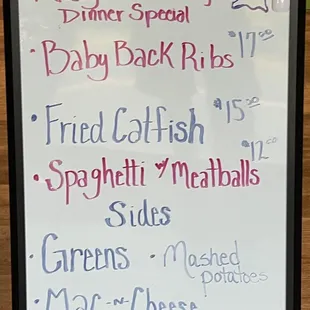 Dinner Special
• Baby Back Ribs $17.00
• Fried Catfish $15.00
• Spaghetti w/ Meatballs $12.00
Sides
• Greens • Mashed potatoes
• Mac-n-Cheese